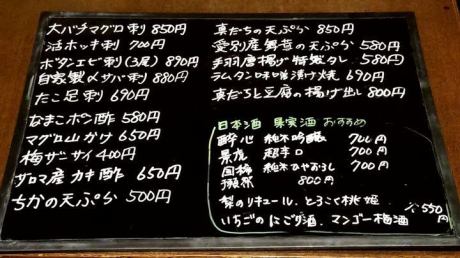 大バチマグロ刺 850円
活ホッキ刺 700円
ボタンエビ刺(3尾) 890円
自家製〆サバ刺 880円
たこ足刺 690円
なまこポン酢 580円
マグロ山かけ 650円
梅ザーサイ 400円
サロマ産カキ酢 650円
ちかの天ぷら 500円
真だちの天ぷら 850円
愛別産舞茸の天ぷら 580円
手羽唐揚げ特製タレ 580円
ラムタン味噌漬け焼 690円
真だちと豆腐の揚げ出し 800円
日本酒 果実酒 おすすめ
酔心 純米吟醸 700円
景虎 超辛口 700円
国稀 純米ひやおろし 700円
800円
梨のリキュール、とろこく桃姫
いちごのにごり酒、マンゴー梅酒 550円